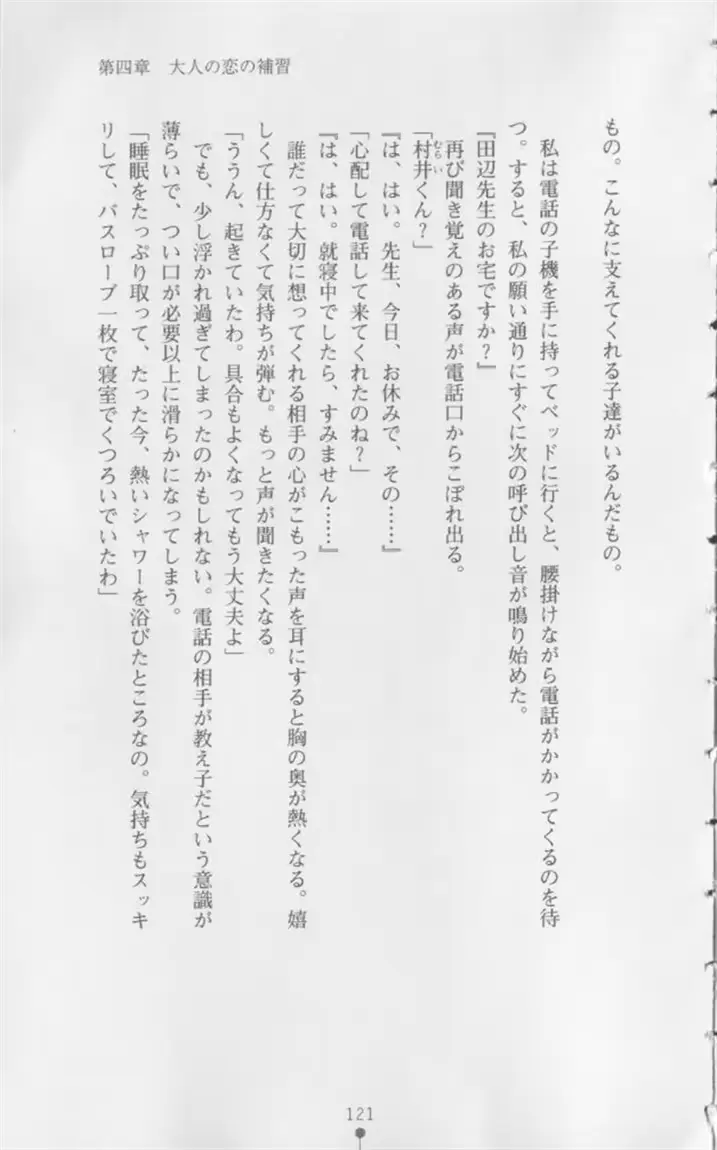 第四章　大人の恋の補習
もの。こんなに支えてくれる子達がいるんだもの。
　私は電話の子機を手に持ってベッドに行くと、腰掛けながら電話がかかってくるのを待
つ。すると、私の願い通りにすぐに次の呼び出し音が鳴り始めた。
『田辺先生のお宅ですか？』
　再び聞き覚えのある声が電話口からこぼれ出る。
「村井くん？」
むらい
『は、はい。先生、今日、お休みで、その……』
「心配して電話して来てくれたのね？」
『は、はい。就寝中でしたら、すみません……』
　誰だって大切に想ってくれる相手の心がこもった声を耳にすると胸の奥が熱くなる。嬉
しくて仕方なくて気持ちが弾む。もっと声が聞きたくなる。
「ううん、起きていたわ。具合もよくなってもう大丈夫よ」
　でも、少し浮かれ過ぎてしまったのかもしれない。電話の相手が教え子だという意識が
薄らいで、つい口が必要以上に滑らかになってしまう。
「睡眠をたっぷり取って、たった今、熱いシャワーを浴びたところなの。気持ちもスッキ
リして、バスローブ一枚で寝室でくつろいでいたわ」
121